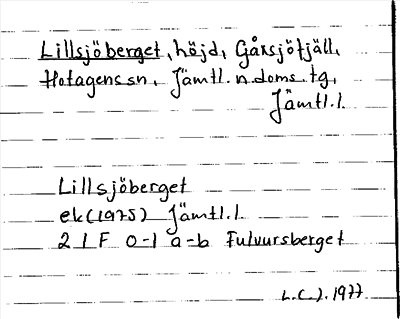 Lillsjöberget, höjd, Gåxsjöfjäll,
Hotagens sn, Jämtl. n. doms. tg,
Jämtl. l.
Lillsjöberget
ek (1975) Jämtl. l.
21F 0-1 a-b Fulvursberget
L.C.J. 1977